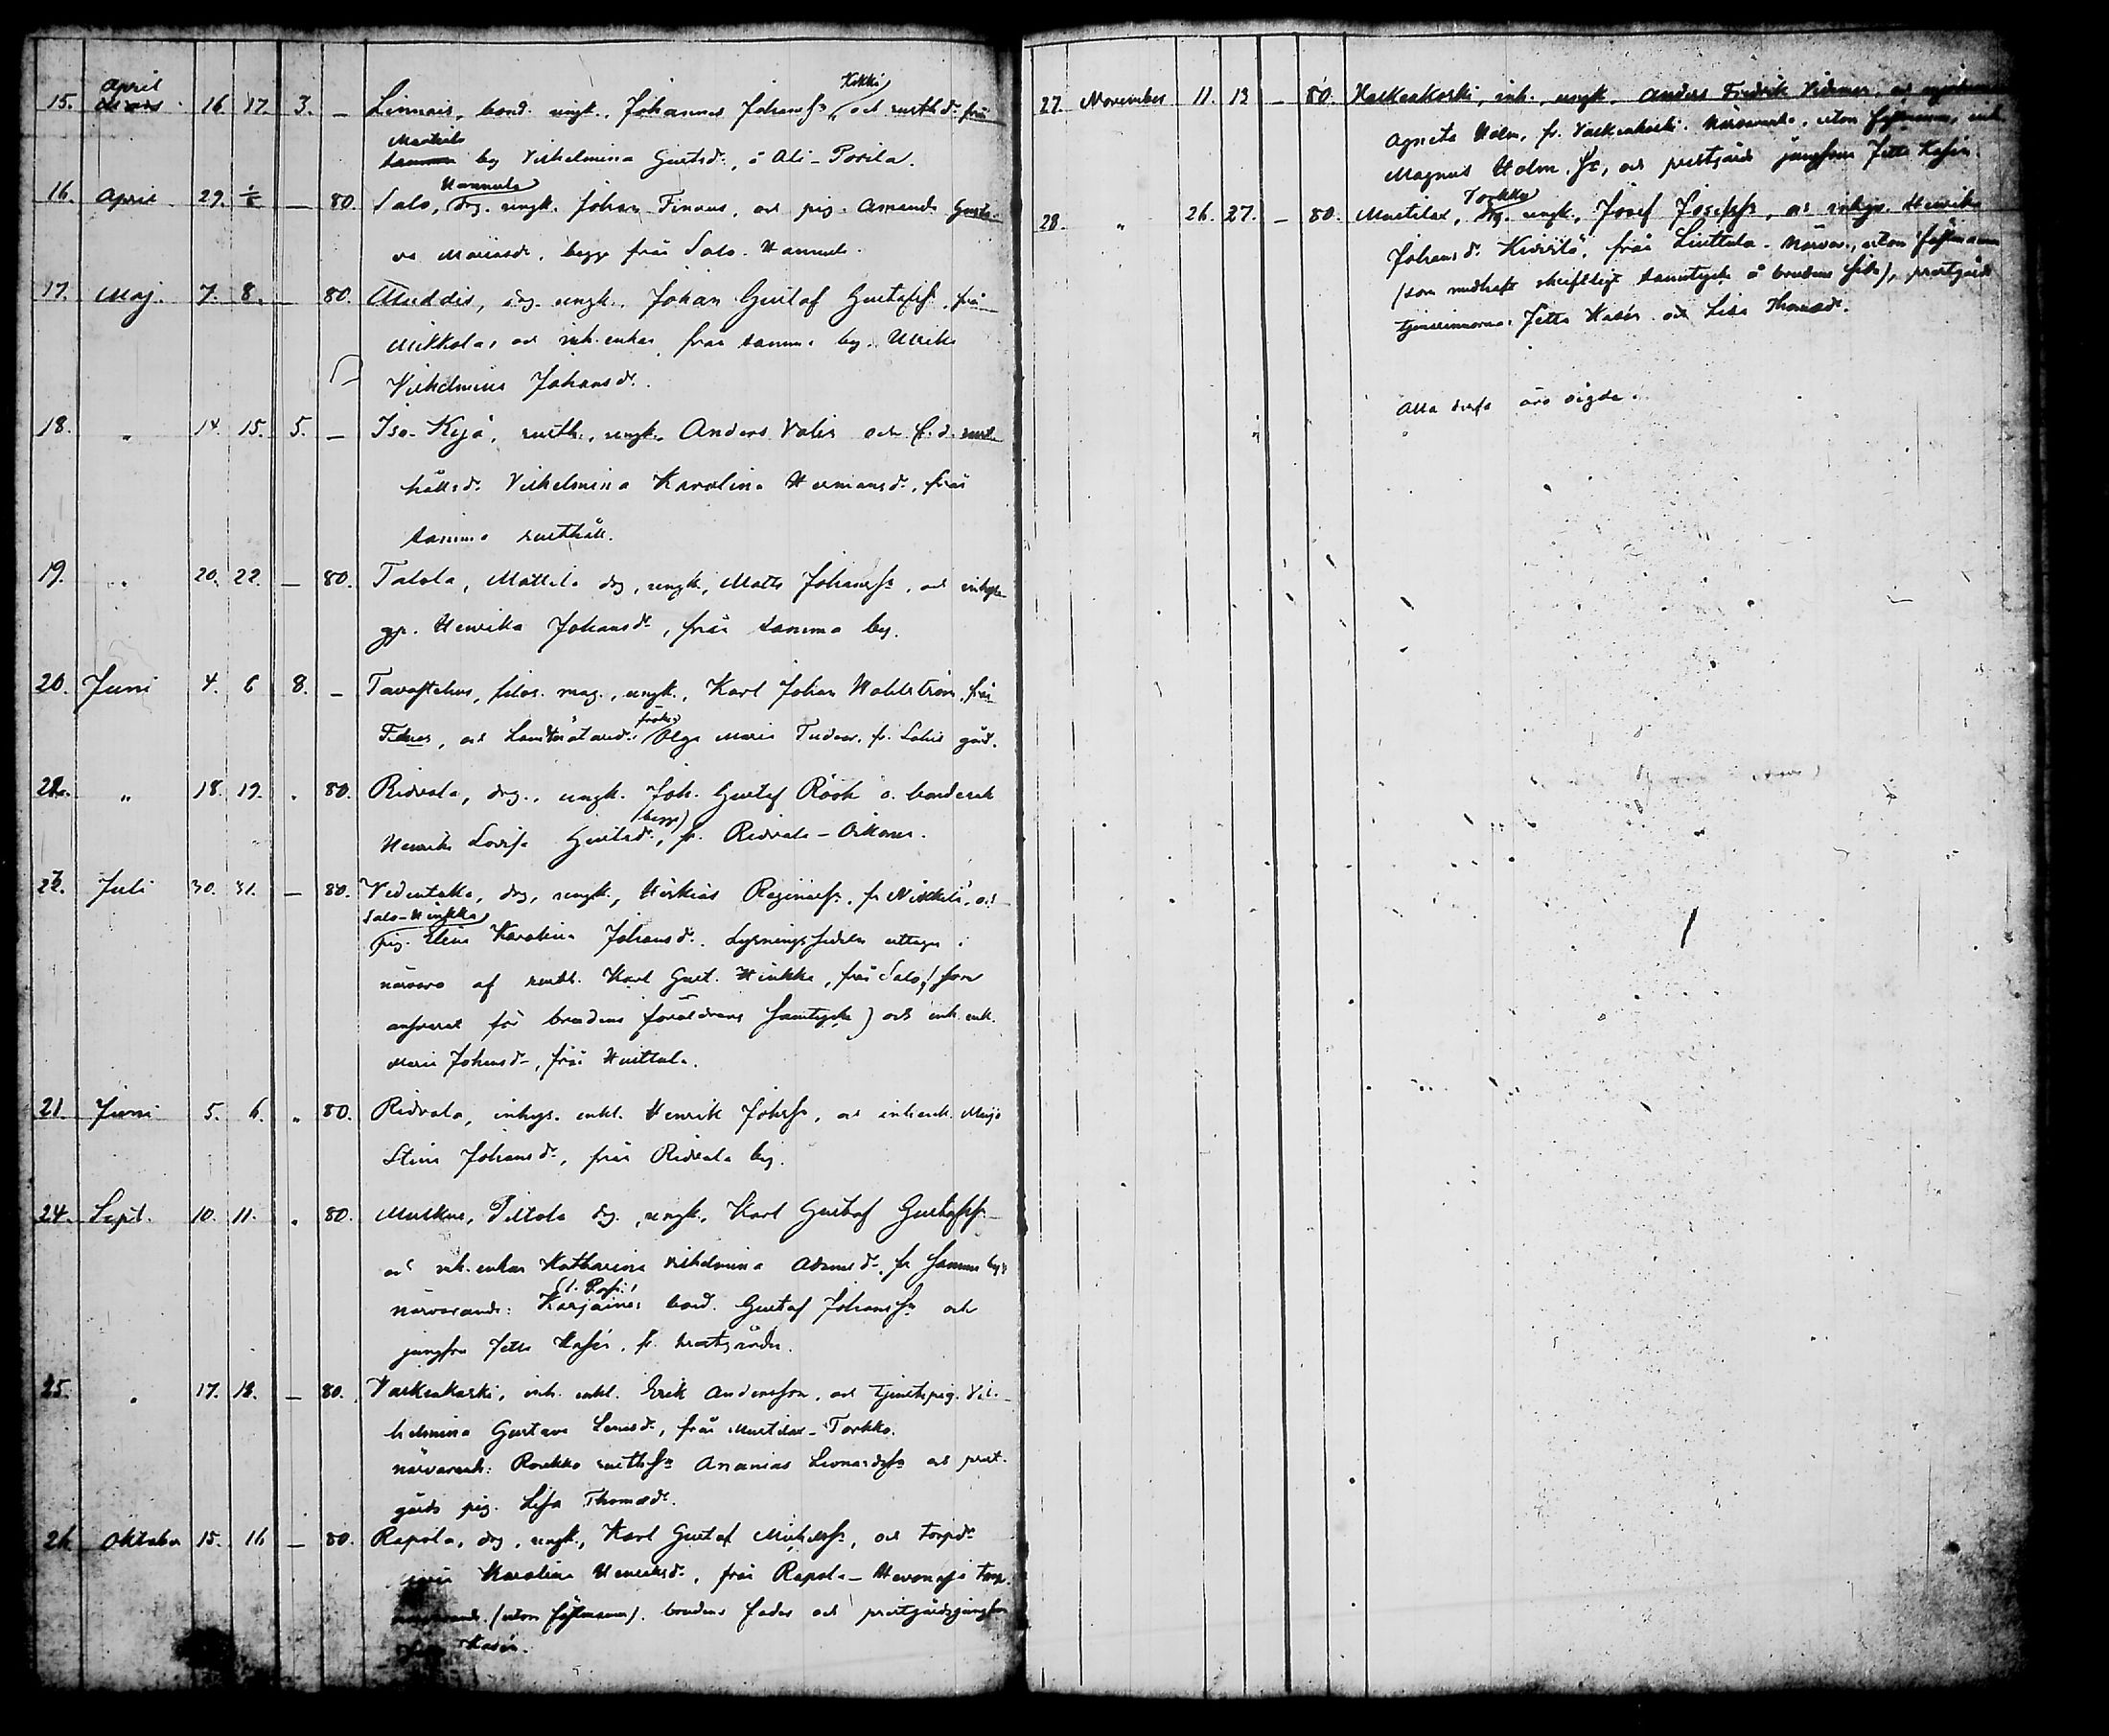 April
15. Mars 16. 17. 3. – Linnais, bond. ungk. Johannes Johansso och rusth.dr från
Kekki
Mattila
samma by Vilhelmina Gustsdr., i Ali-Porila.
Hannula
16. April 29. 1/5 — 80. Salo, drg. ungk. Johan Finnus, och pig. Amanda Gusta-
va Mariasdr, begge från Salo-Hannula.
17. Maj. 7. 8. — 80. Auddis, drg. ungk. Johan Gustaf Gustafsso, från
Mikkola, och inh. enkan från samma by, Ulrika
Vilhelmina Johansdr.
18. „ 14. 15. 5. – Iso-Kyjä, rusth., ungk. Anders Valis och f.d. rust-
hålls dr. Vilhelmina Karolina Hermansdr., från
samma rusthåll.
19. „ 20. 22. — 80. Talola, Mattila drg, ungk., Matts Johansso, och inhys
gp. Henrika Johansdr, från samma by.
20. Juni 4. 6 8. – Tavastehus, filos. mag., ungk., Karl Johan Hahlström, från
fröken
och Landtmätaredr. Olga Maria Tudeer, fr. Lahis gård.
22. „ 18. 19. „ 80. Ridvala, drg., ungk. Joh. Gustaf Röök o. bondenk
(begge)
Henrika Lovisa Gustsdr., fr. Ridvala-Oikonen.
Juli 30. 31. — 80. Vedentaka, drg, ungk., Herkias Reginasso, fr. Nikkilä, och
Salo-Hinkka
pig. Elina Karolina Johansdr. Lysningssedeln uttagen i
närvaro af rusth. Karl Gust. Hinkka, från Salo, (som
ansvarar för brudens föräldrars samtycke) och inh. enk.
Maria Johansdr, från Huittula.
21. Juni 5. 6. „ 80. Ridvala, inhys. enkl. Henrik Johsso, och inh. enk. Maja
Stina Johansdr, från Ridvala by.
24. Sept. 10. 11. „ 80. Muskus, Piltola drg., ungk., Karl Gustaf Gustafsso
och inh. enkan Katharina Vilhelmina Adamsdr, fr samma by.
närvarande: Karjainen bond. Gustaf Johansso och
jungfru Jetta Kasén, fr. prestgården.
25. „ 17. 18. — 80. Vaskenkoski, inh. enkl. Erik Andersson, och tjenstepig. Vil-
helmina Gustava Leensdr, från Mustilax-Torkko.
närvarande: Roukko rusthso Ananias Leonardsso och prest-
gårds pig. Lisa Thomædr.
26. Oktober 15. 16 — 80. Rapola, drg, ungk., Karl Gustaf Michelsso, och torpdr
Karolina Henriksdr., från Rapola-Hevonoja torp.
närvarande (utom fästmannen) brudens fader och prestgårdsjungfru
Kasén.
27. November 11. 13 – 80. Valkeakoski, inh., ungk. Anders Fredrik Videman, och
Agneta Holm, fr. Valkeakoski. Närvarande, utom fästmannen, inh
Magnus Holm, och prestgårds jungfrun Jetta Kasén.
Torkko
28. „ 26. 27. – 80. Mustilax, drg. ungk., Josef Josefsso, och inhys. Henrika
Johansdr. Kivistö, från Liuttula. Närvar., utom fästmannen
(som medhaft skriftligt samtycke å brudens sida), prestgårds
tjenarinnorna Jetta Kasén och Lisa Thomædr.
Alla dessa äro vigda.